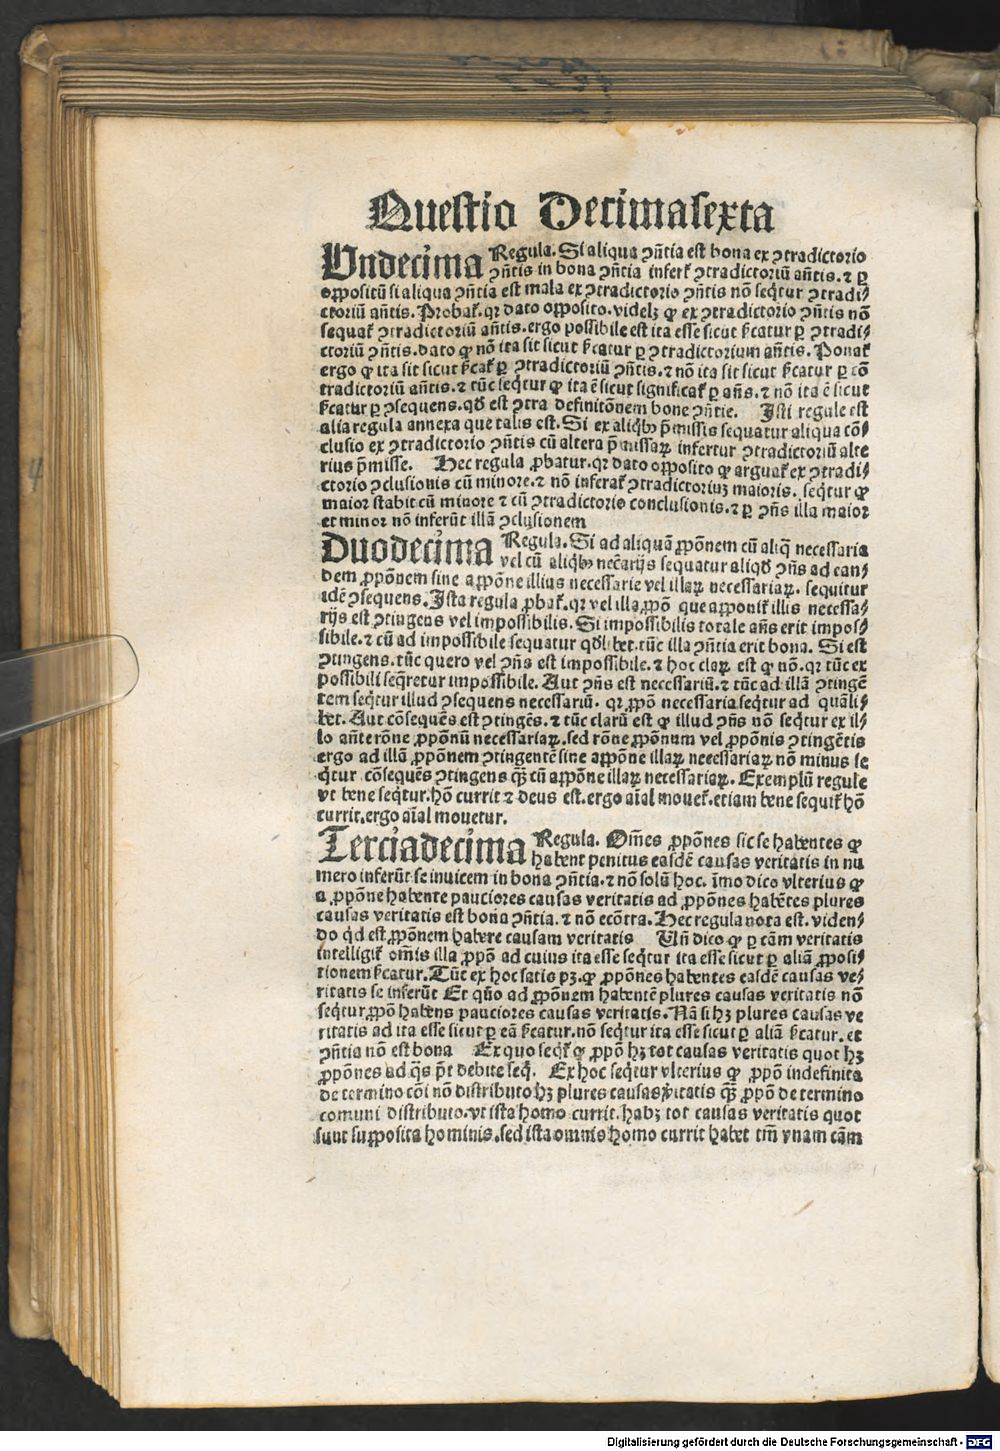 Questio Decimasexta
Undecima Regula. Si aliqua ꝯñtia est bona ex ꝯtradictorio
ꝯñtis in bona ꝯñtia infert̃ ꝯtradictoriũ añtis. ⁊ ꝑ
oppositũ si aliqua ꝯñtia est mala ex ꝯtradictorio ꝯñtis nõ seq̃tur ꝯtradi⸗
ctoriũ añtis. Probat̃. qꝛ dato opposito. videlꝫ ꝙ ex ꝯtradictorio ꝯñtis nõ
sequat̃ ꝯtradictoriũ añtis. ergo possibile est ita esse sicut ẜcatur ꝑ ꝯtradi⸗
ctoriũ ꝯñtis. dato ꝙ nõ ita sit sicut ẜcatur ꝑ ꝯtradictorium añtis. Ponat̃
ergo ꝙ ita sit sicut ẜcat̃ ꝑ ꝯtradictoriũ ꝯñtis. ⁊ nõ ita sit sicut ẜcatur ꝑ cõ
tradictoriũ añtis. ⁊ tũc seq̃tur ꝙ ita ẽ sicut significat̃ ꝑ añs. ⁊ nõ ita ẽ sicut
ẜcatur ꝑ ꝯsequens. qď est ꝯtra definitõnem bone ꝯñtie. Isti regule est
alia regula annexa que talis est. Si ex aliqbꝰ p̃missis sequatur aliqua cõ⸗
clusio ex ꝯtradictorio ꝯñtis cũ altera p̃missaꝝ infertur ꝯtradictoriũ alte
rius p̃misse. Hec regula ꝓbatur. qꝛ dato opposito ꝙ arguat̃ ex ꝯtradi⸗
ctorio ꝯclusionis cũ minore. ⁊ nõ inferat̃ ꝯtradictoriuꝫ maioris. seq̃tur ꝙ
maior stabit cũ minore ⁊ cũ ꝯtradictorio conclusionis. ⁊ ꝑ ꝯñs illa maior
et minor nõ inferũt illã ꝯclusionem
Duodecima Regula. Si ad aliquã ꝓpõnem cũ aliq̃ necessaria
vel cũ aliqbꝰ nec̃arijs sequatur aliqď ꝯñs ad ean⸗
dem ꝓpõnem sine appõne illius necessarie vel illaꝝ necessariaꝝ. sequitur
idẽ ꝯsequens. Ista regula ꝓbat̃. qꝛ vel illa ꝓpõ que apponit̃ illis necessa⸗
rijs est ꝯtingens vel impossibilis. Si impossibilis totale añs erit impos⸗
sibile. ⁊ cũ ad impossibile sequatur qďlibet. tũc illa ꝯñtia erit bona. Si est
ꝯtingens. tũc quero vel ꝯñs est impossibile. ⁊ hoc claꝝ est ꝙ nõ. qꝛ tũc ex
possibili seq̃retur impossibile. Aut ꝯñs est necessariũ. ⁊ tũc ad illã ꝯtingẽ
tem seq̃tur illud ꝯsequens necessariũ. qꝛ ꝓpõ necessaria seq̃tur ad quãli⸗
bet. Aut cõsequẽs est ꝯtingẽs. ⁊ tũc clarũ est ꝙ illud ꝯñs nõ seq̃tur ex il⸗
lo añte rõne ꝓpõnũ necessariaꝝ. sed rõne ꝓpõnum vel ꝓpõnis ꝯtingẽtis
ergo ad illã ꝓpõnem ꝯtingentẽ sine appõne illaꝝ necessariaꝝ nõ minus se
q̃tur cõsequẽs ꝯtingens qꝫ̃ cũ appõne illaꝝ necessariaꝝ. Exemplũ regule
vt bene seq̃tur. hõ currit ⁊ deus est. ergo aĩal mouet̃. etiam bene sequit̃ hõ
currit. ergo aĩal mouetur.
Terciadecima Regula. Om̃es ꝓpõnes sic se habentes ꝙ
habent penitus easdẽ causas veritatis in nu
mero inferũt se inuicem in bona ꝯñtia. ⁊ nõ solũ hoc. ĩmo dico vlterius ꝙ
a ꝓpõne habente pauciores causas veritatis ad ꝓpõnes habẽtes plures
causas veritatis est bona ꝯñtia. ⁊ nõ ecõtra. Hec regula nota est. viden⸗
do q̃d est ꝓpõnem habere causam veritatis Uñ dico ꝙ ꝑ cãm veritatis
intelligit̃ om̃is illa ꝓpõ ad cuius ita esse seq̃tur ita esse sicut ꝑ aliã ꝓposi⸗
tionem ẜcatur. Tũc ex hoc satis pꝫ. ꝙ ꝓpõnes habentes easdẽ causas ve⸗
ritatis se inferũt Et qño ad ꝓpõnem habentẽ plures causas veritatis nõ
seq̃tur ꝓpõ habens pauciores causas veritatis. Nã si hꝫ plures causas ve
ritatis ad ita esse sicut ꝑ eã ẜcatur. nõ seq̃tur ita esse sicut ꝑ aliã ẜcatur. et
ꝯñtia nõ est bona Ex quo seqt̃ ꝙ ꝓpõ hꝫ tot causas veritatis quot hꝫ
ꝓpõnes ad q̃s p̃t debite seq̃. Ex hoc seq̃tur vlterius ꝙ ꝓpõ indefinita
de termino cõi nõ distributo hꝫ plures causas ṽitatis qꝫ̃ ꝓpõ de termino
comuni distributo. vt ista homo currit. habꝫ tot causas veritatis quot
sunt supposita hominis. sed ista omnis homo currit habet tm̃ vnam cãm
Digitalisierung gefördert durch die Deutsche Forschungsgemeinschaft - DFG